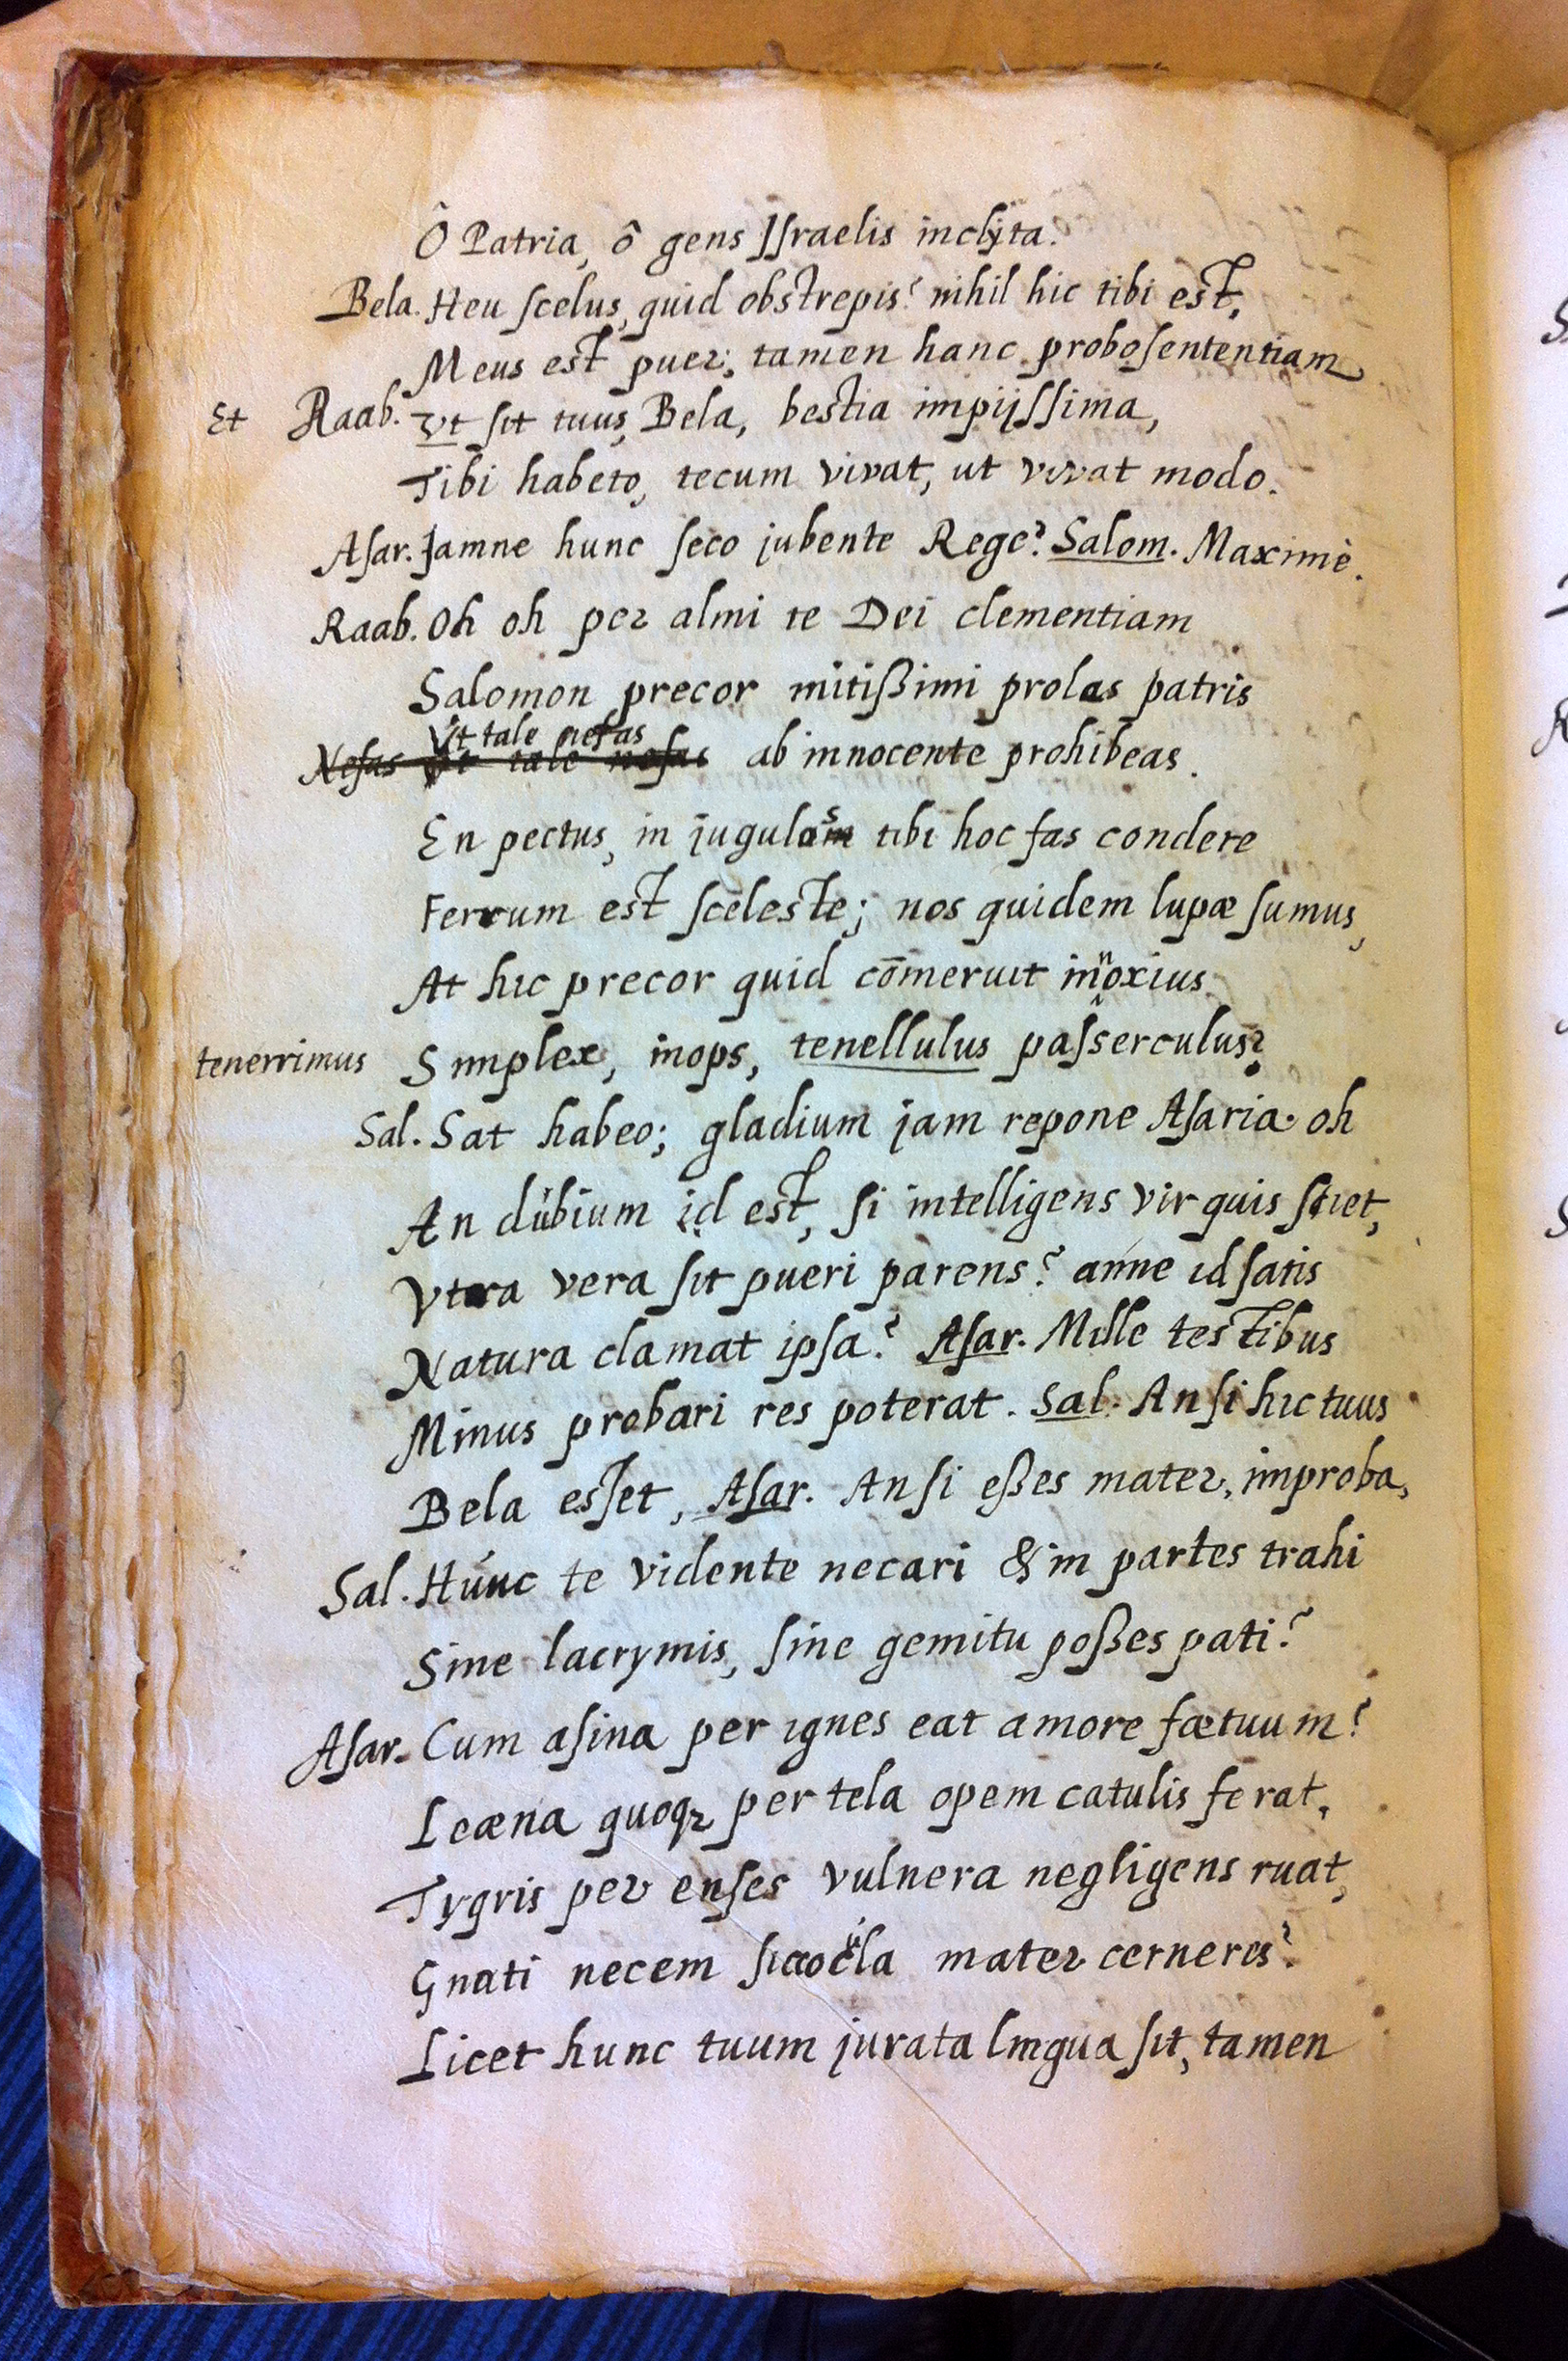 Ô Patria, ô gens Iſraelis inclyta.
Bela. Heu ſcelus, quid obstrepis? nihil hic tibi est,
Meus est puer; tamen hanc probo ſententiam
Et Raab. Vt ſit tuus, Bela, bestia impijſſima,
Tibi habeto, tecum vivat, ut vivat modo.
Aſar. Jamne hunc ſeco jubente Rege? Salom. Maximè.
Raab. Oh oh per almi te Dei clementiam
Salomon, precor mitißimi proles patris
Vt tale nefas
Nefas Vt tale nefas ab innocente prohibeas.
En pectus, in jugulos tibi hoc fas condere
Ferrum est ſceleste; nos quidem lupæ ſumus,
At hic precor quid cōmeruit innoxius
tenerrimus Simplex, inops, tenellulus paſserculus?
Sal. Sat habeo; gladium jam repone Aſaria. oh
An dubium id est, ſi intelligens vir quis ſciet,
Vtra vera ſit pueri parens? anne id ſatis
Natura clamat ipſa? Aſar. Mille testibus
Minus probari res poterat. Sal. An ſi hic tuus
Bela esſet, Aſar. An ſi eßes mater, improba,
Sal. Húnc te vidente necari & in partes trahi
Sine lacrymis, ſine gemitu poßes pati?
Aſar. Cum aſina per ignes eat amore fætuum?
Leæna quoqꝫ per tela opem catulis ferat,
Tygris per enſes vulnera negligens ruat,
Gnati necem mater cerneres?
Licet hunc tuum jurata lingua ſit, tamen